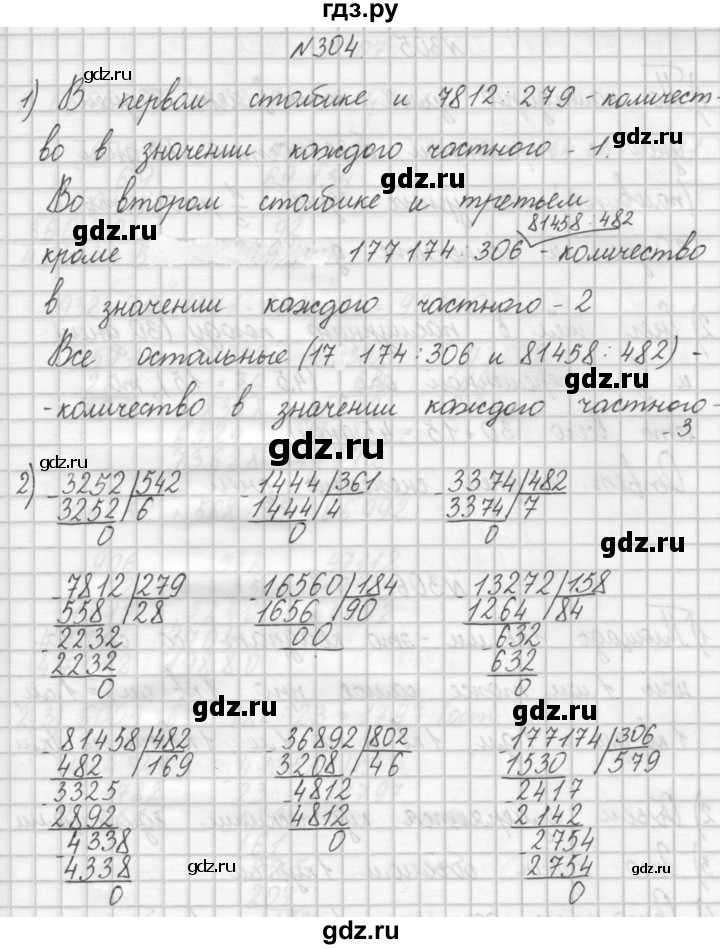 гдз.ру
№304.
1) В первом столбике и 7812:279 - количест-
во в значении каждого частного - 1.
Во втором столбике и третьем
81458:482
кроме 177174:306 - количество
в значении каждого частного - 2
Все остальные (17 174:306 и 81458:482) -
- количество в значении каждого частного -
- 3.
2) - 3252 | 542 - 1444 | 361 - 3374 | 482
3252 | 6 1444 | 4 3374 | 7
0 0 0
- 7812 | 279 - 16560 | 184 - 13272 | 158
558 | 28 1656 | 90 1264 | 84
- 2232 00 - 632
2232 632
0 0
- 81458 | 482 - 36892 | 802 - 177174 | 306
482 | 169 3208 | 46 1530 | 579
- 3325 - 4812 - 2417
2892 4812 2142
- 4338 0 - 2754
4338 2754
0 0
gdz.ru
gdz.ru
gdz.ru
gdz.ru
gdz.ru
gdz.ru
gdz.ru
gdz.ru
gdz.ru
gdz.ru
gdz.ru
gdz.ru
gdz.ru
gdz.ru